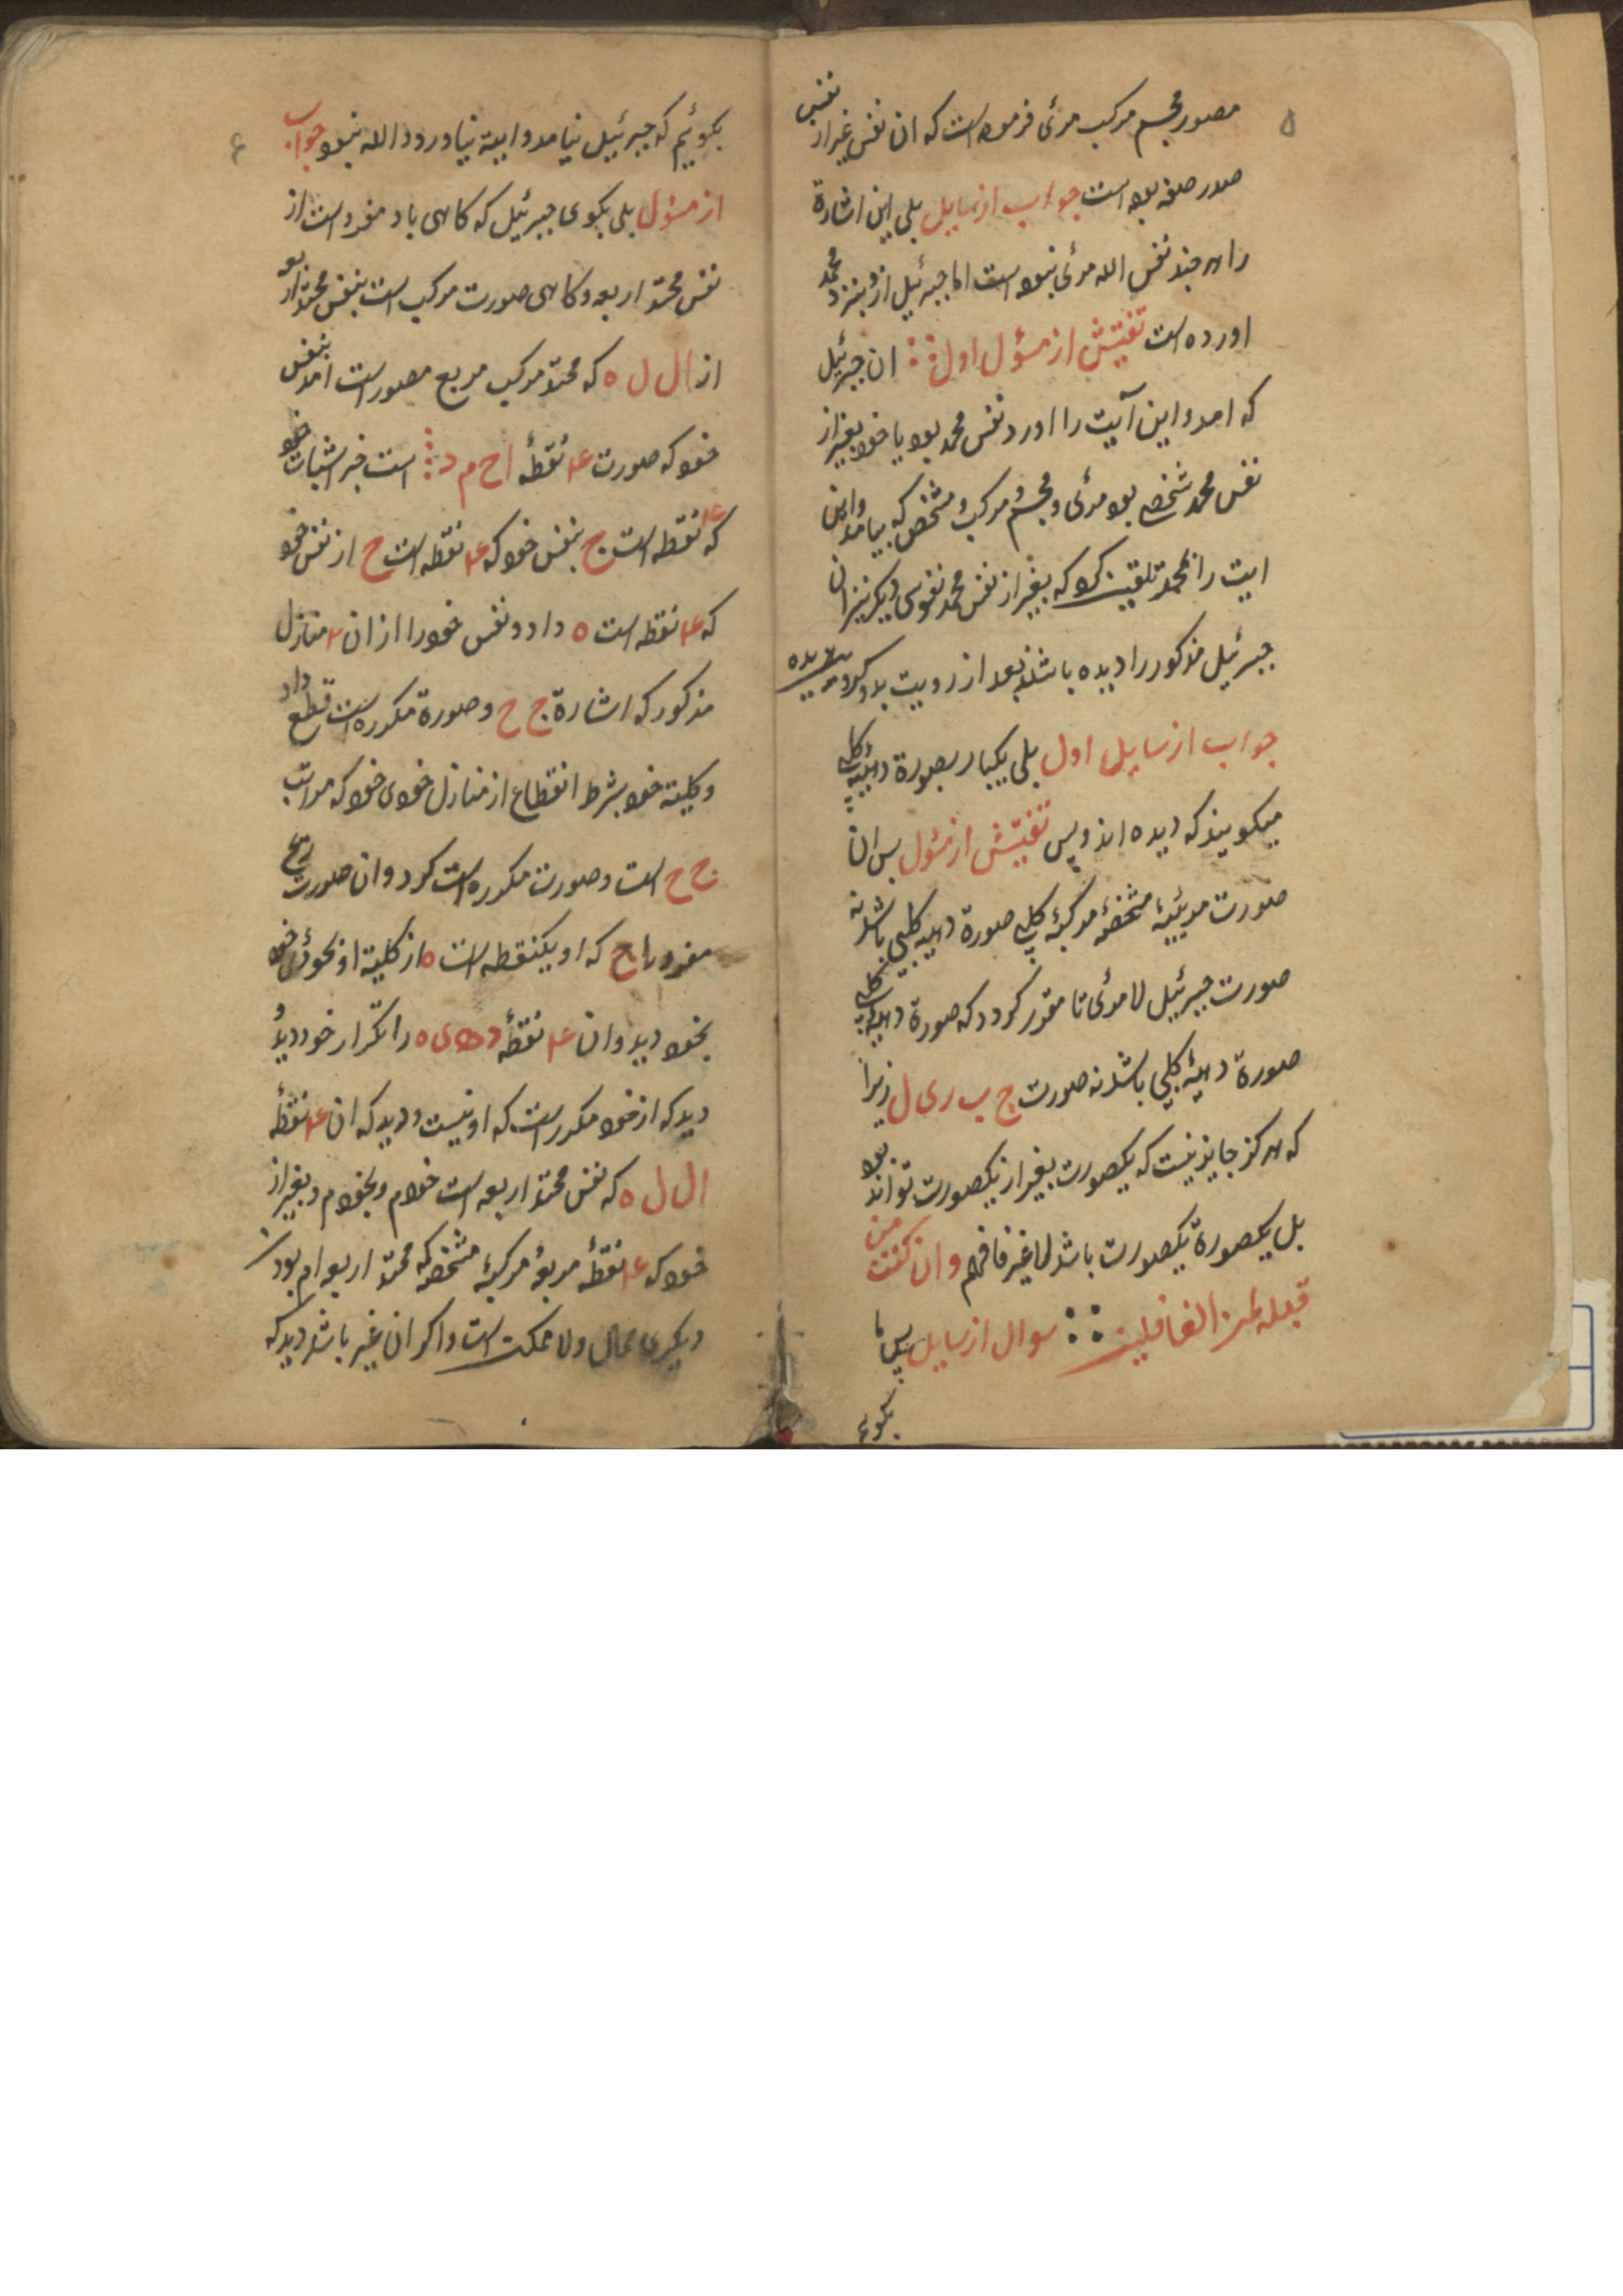 ۵
مصور مجسم مرکب مرئی فرموده است که ان نفس غیر از نفس
صدر صفه بوده است جواب از سایل بلی این اشارة
را هر چند نفس الله مرئی نبوده است اما جبرئیل ازو بنزد محمد
اورده است تفتیش از مسؤل اول ان جبرئیل
که امد و این آیت را اورد نفس محمد بود یا خود بغیر از
نفس محمد شخصی بود مرئی و مجسم و مرکب و مشخص که بیامد و این
ایت را بمحمد تلقین کرد که بغیر از نفس محمد نفوس دیکر نیز ان
جبرئیل مذکور را دیده باشند بعد از رویت بدو کرویده
جواب از سایل اول بلی یکبار بصورة دهیه کلبی
میکویند که دیده اند و بس تفتیش از مسؤل بس ان
صورت مرئییهٔ مشخصهٔ مرکبهٔ کلبی صورة دهیه کلبی باشد نه
صورت جبرئیل لا مرئی تا مقرر کردد که صورة دهیه کلبی
صورة دهیهٔ کلبی باشد نه صورت ج ب ر ی ل زیرا
که هرکز جایز نیست که یکصورت بغیر از یکصورت تواند بود
بل یکصورة یکصورت باشد لا غیر فافهم وان کنت من
قبله لمن الغافلین سوال از سایل پس ما
بکوئیم
۶
بکوئیم که جبرئیل نیامد و ایة نیاورد و الله نبود جواب
از مسؤل بلی بکوی جبرئیل که کاهی باد مفرد است از
نفس محمد اربعه و کاهی صورت مرکب است بنفس محمد اربعه
از ال ل ه که محمد مرکب مربع مصور است امد بنفس
خود که صورت ۴ نقطهٔ ا ح م د است خبر اثبات خود
که ۴ نقطه است ج بنفس خود که ۴ نقطه است ح از نفس خود
که ۴ نقطه است ه داد و نفس خود را از ان ۲ منازل
مذکور که اشارة ج ح و صورة مکرره است قطع داد
و کلیته خود بشرط انقطاع از منازل خودی خود که مراتب
ج ح است و صورت مکرره است کرد و ان صورت
مفرد با ج که او یکنقطه است ه از کلیة او بخودی خود
بخود دید و ان ۴ نقطهٔ د ه ی ه را تکرار خود دید و
دید که از خود مکرر است که او نیست و دید که ان ۴ نقطهٔ
ال ل ه که نفس محمد اربعه است خودم و بخودم و بغیر از
خود که ۴ نقطهٔ مربعهٔ مرکبهٔ مشخصه که محمد اربعه ام بود
دیکری محال ولا ممکنت است و اکر ان غیر باشد دید که